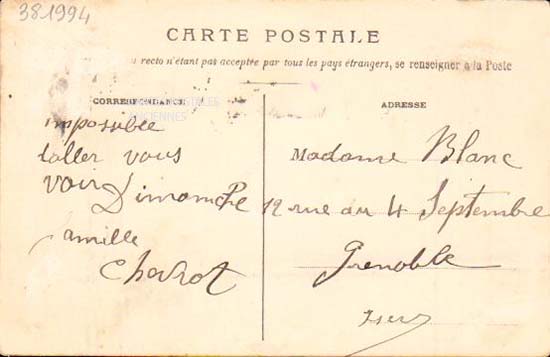 381994
CARTE POSTALE
recto n'étant pas acceptée par tous les pays étrangers, se renseigner à la Poste
CORRESPONDANCE
impossible
daller vous
voir Dimanche
amille
Chevrot
ADRESSE
Madame Blanc
12 rue du 4 Septembre
Grenoble
Isere